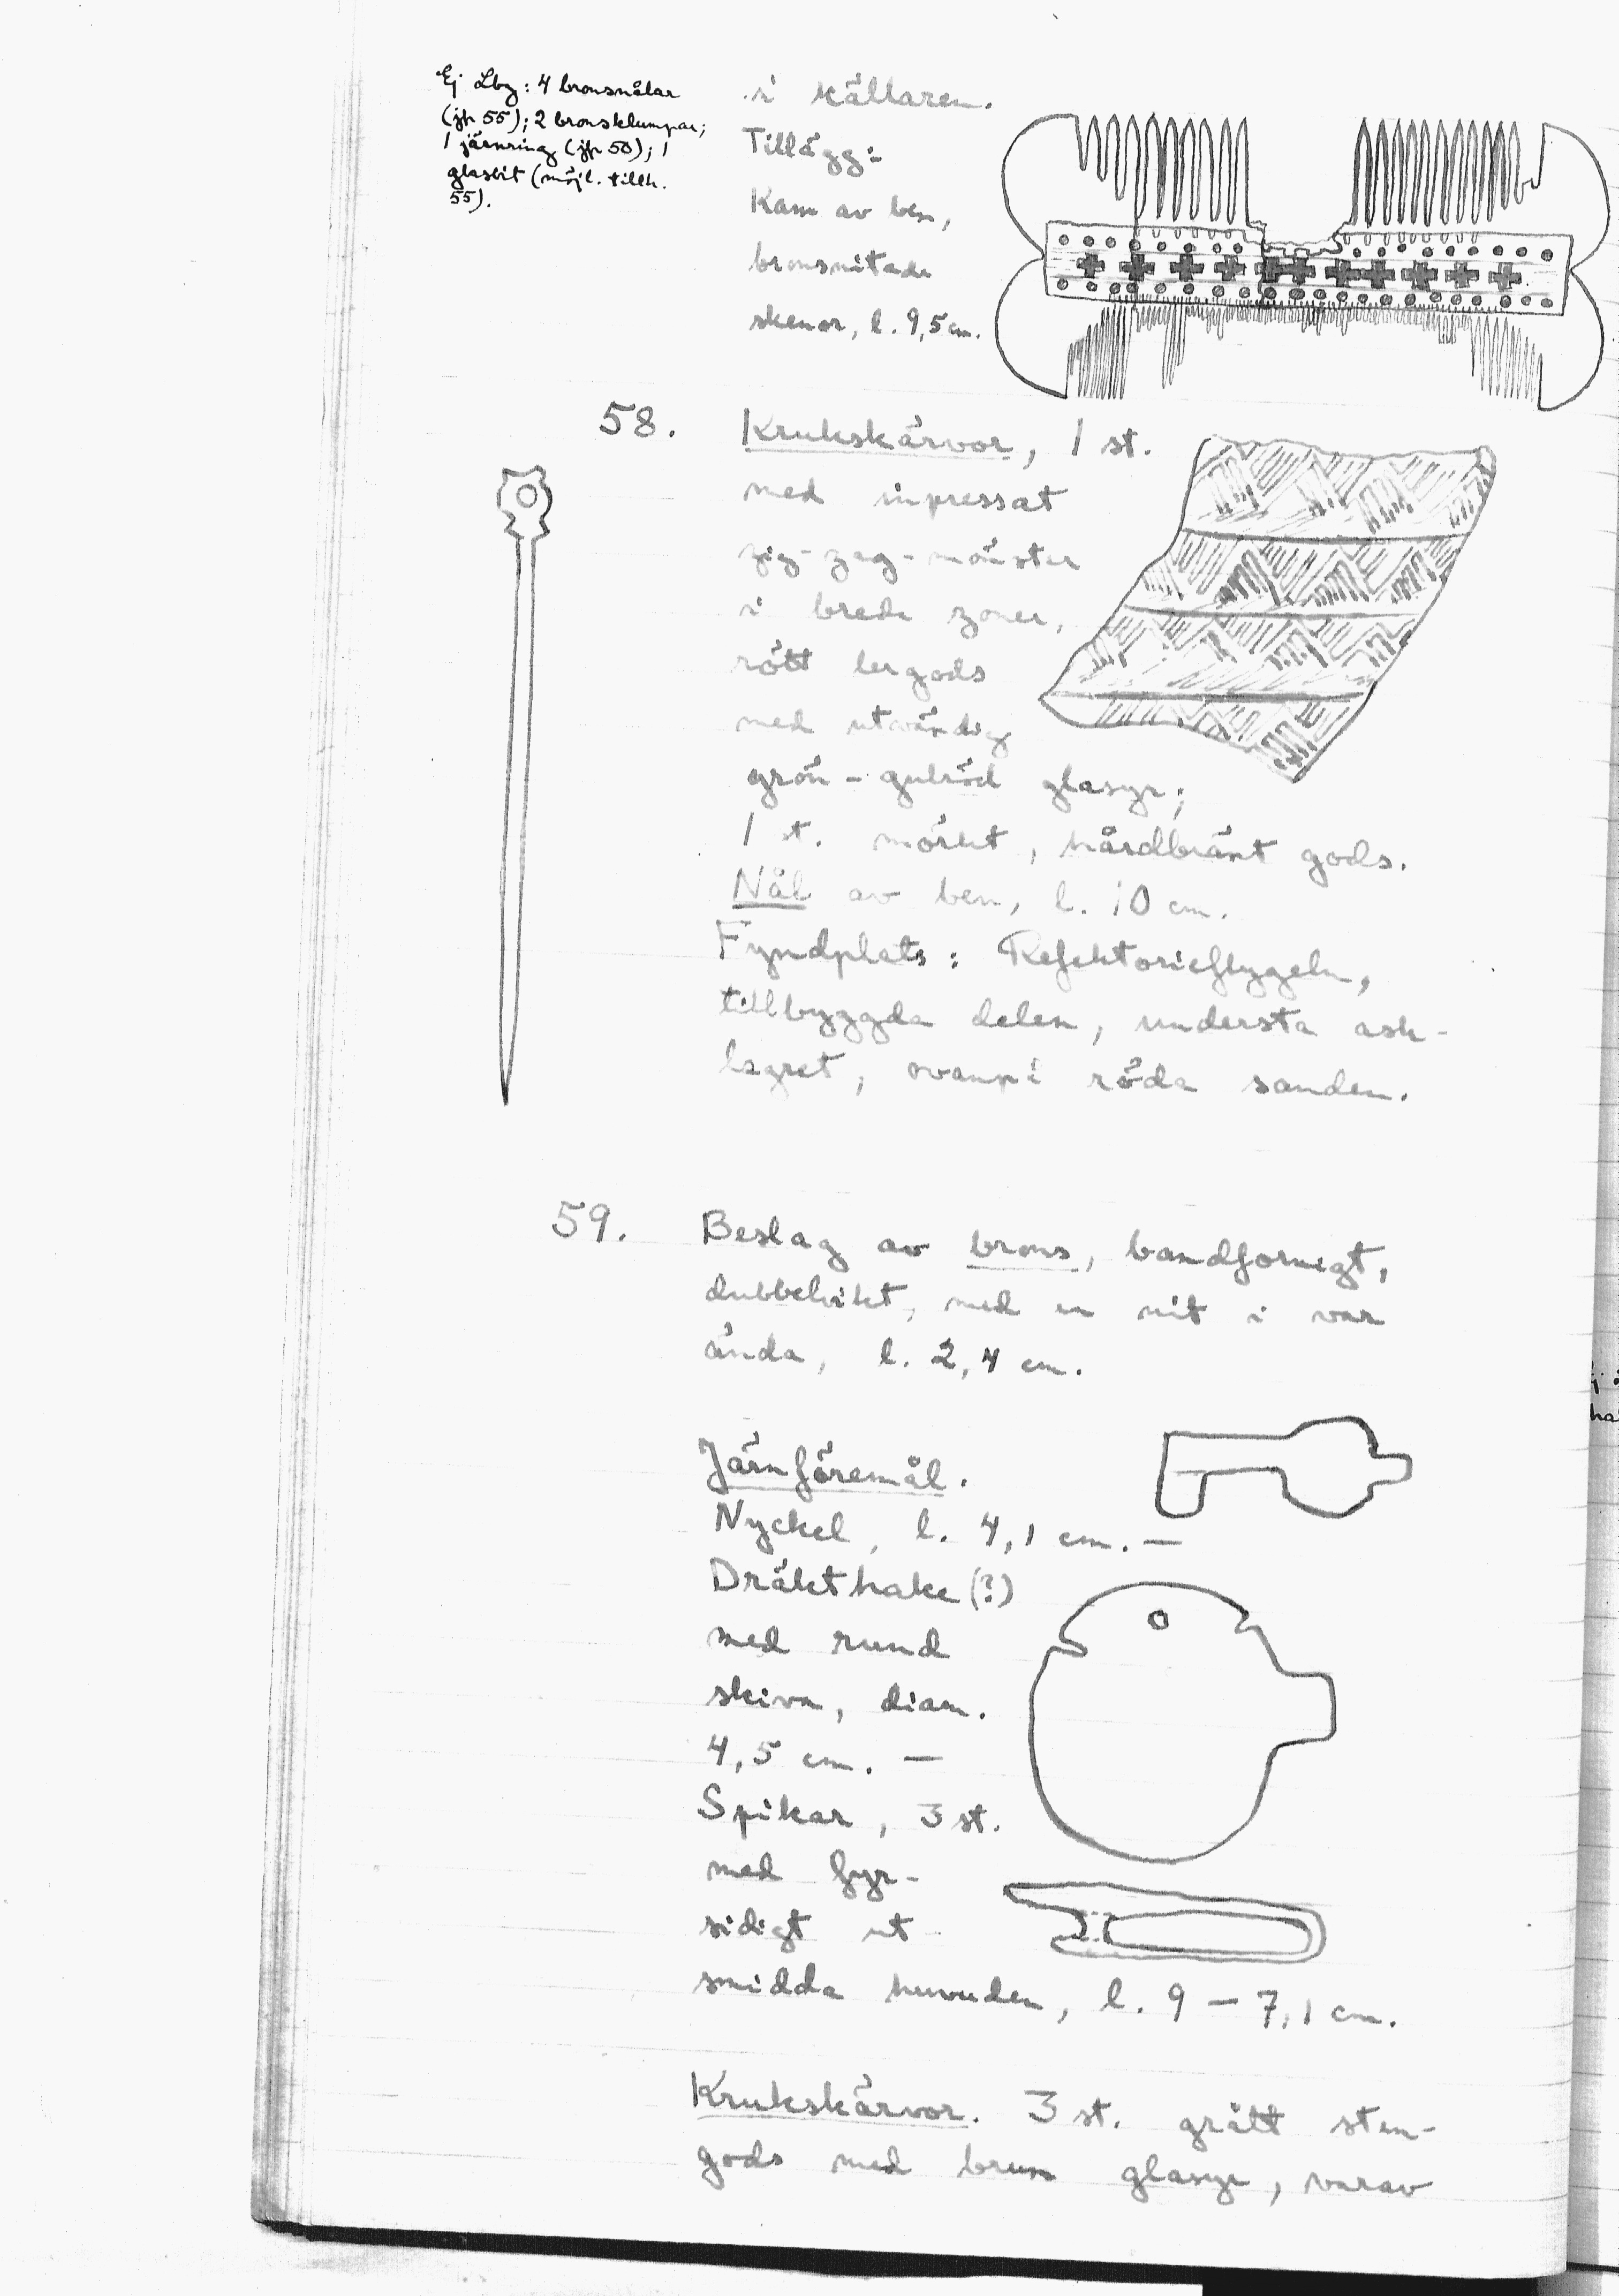 Ej Lbg: 4 bronsnålar
(jfr 55); 2 bronsklumpar;
1 järnring (jfr 50); 1
glasbit (möjl. tillh.
55).
i källaren.
Tillägg:
Kam av ben,
bronsnitade
skenor, l. 9,5 cm.
58. Krukskärvor, 1 st.
med inpressat
zig-zag-mönster
i breda zoner,
rött lergods
med utvändig
grön-gulröd glasyr;
1 st. mörkt, hårdbränt gods.
Nål av ben, l. 10 cm.
Fyndplats: Refektorieflygeln,
tillbyggda delen, understa ask-
lagret, ovanpå röda sanden.
59. Beslag av brons, bandformigt,
dubbelvikt, med en nit i var
ända, l. 2,4 cm.
Järnföremål.
Nyckel, l. 4,1 cm. —
Dräkthake (?)
med rund
skiva, diam.
4,5 cm. —
Spikar, 3 st.
med fyr-
sidigt ut
smidda huvuden, l. 9 — 7,1 cm.
Krukskärvor. 3 st. grått sten-
gods med brun glasyr, varav